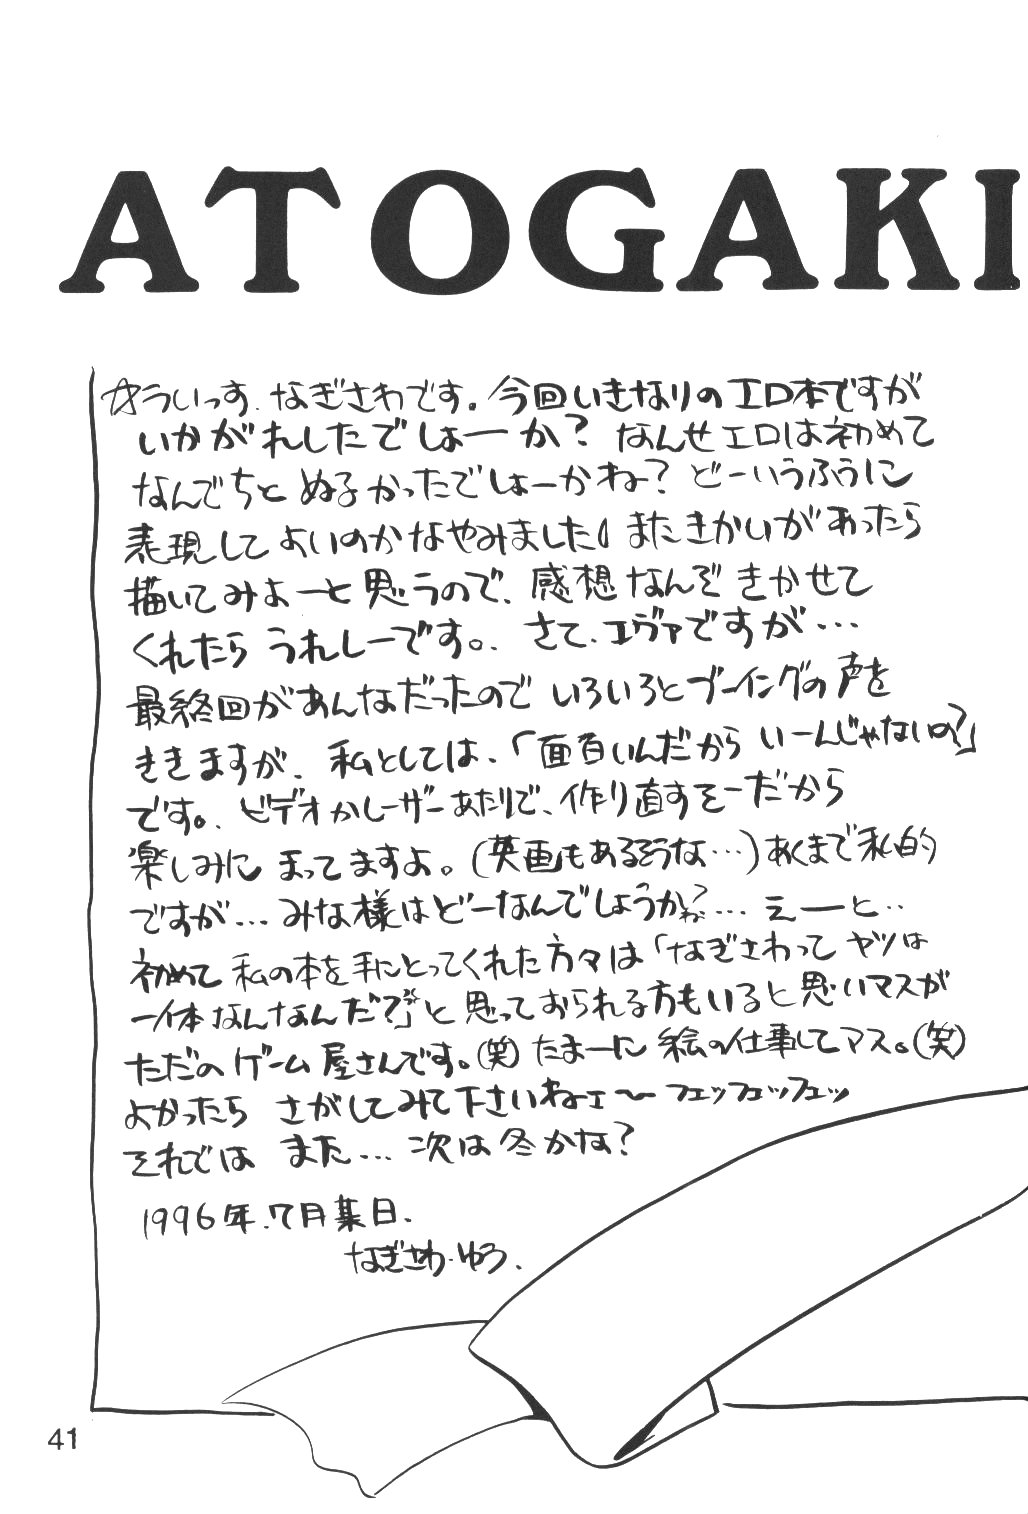 ATOGAKI
☆ういっす、なぎさわです。今回いきなりのエロ本ですが
いかがれしたでしょーか？ なんせエロは初めて
なんでちとぬるかったでしょーかね？ どーいうふうに
表現してよいのかなやみました。またきかいがあったら
描いてみよーと思うので、感想なんぞきかせて
くれたらうれしーです。 さて、エヴァですが…
最終回があんなだったのでいろいろとブーイングの声を
ききますが、私としては、「面白いんだからいーんじゃないの？」
です。ビデオかレーザーあたりで、作り直すそーだから
楽しみにまってますよ。(英画もあるそうな…)あくまで私的
ですが…みな様はどーなんでしょうか？…えーと‥
初めて私の本を手にとってくれた方々は「なぎさわってヤツは
一体なんなんだ？」と思っておられる方もいると思いマスが
ただのゲーム屋さんです。(笑)たまーに絵の仕事してマス。(笑)
よかったらさがしてみて下さいねェ〜フェッフェッフェッ
それではまた…次は冬かな？
1996年.7月某日.
なぎさわ・ゆう.
41